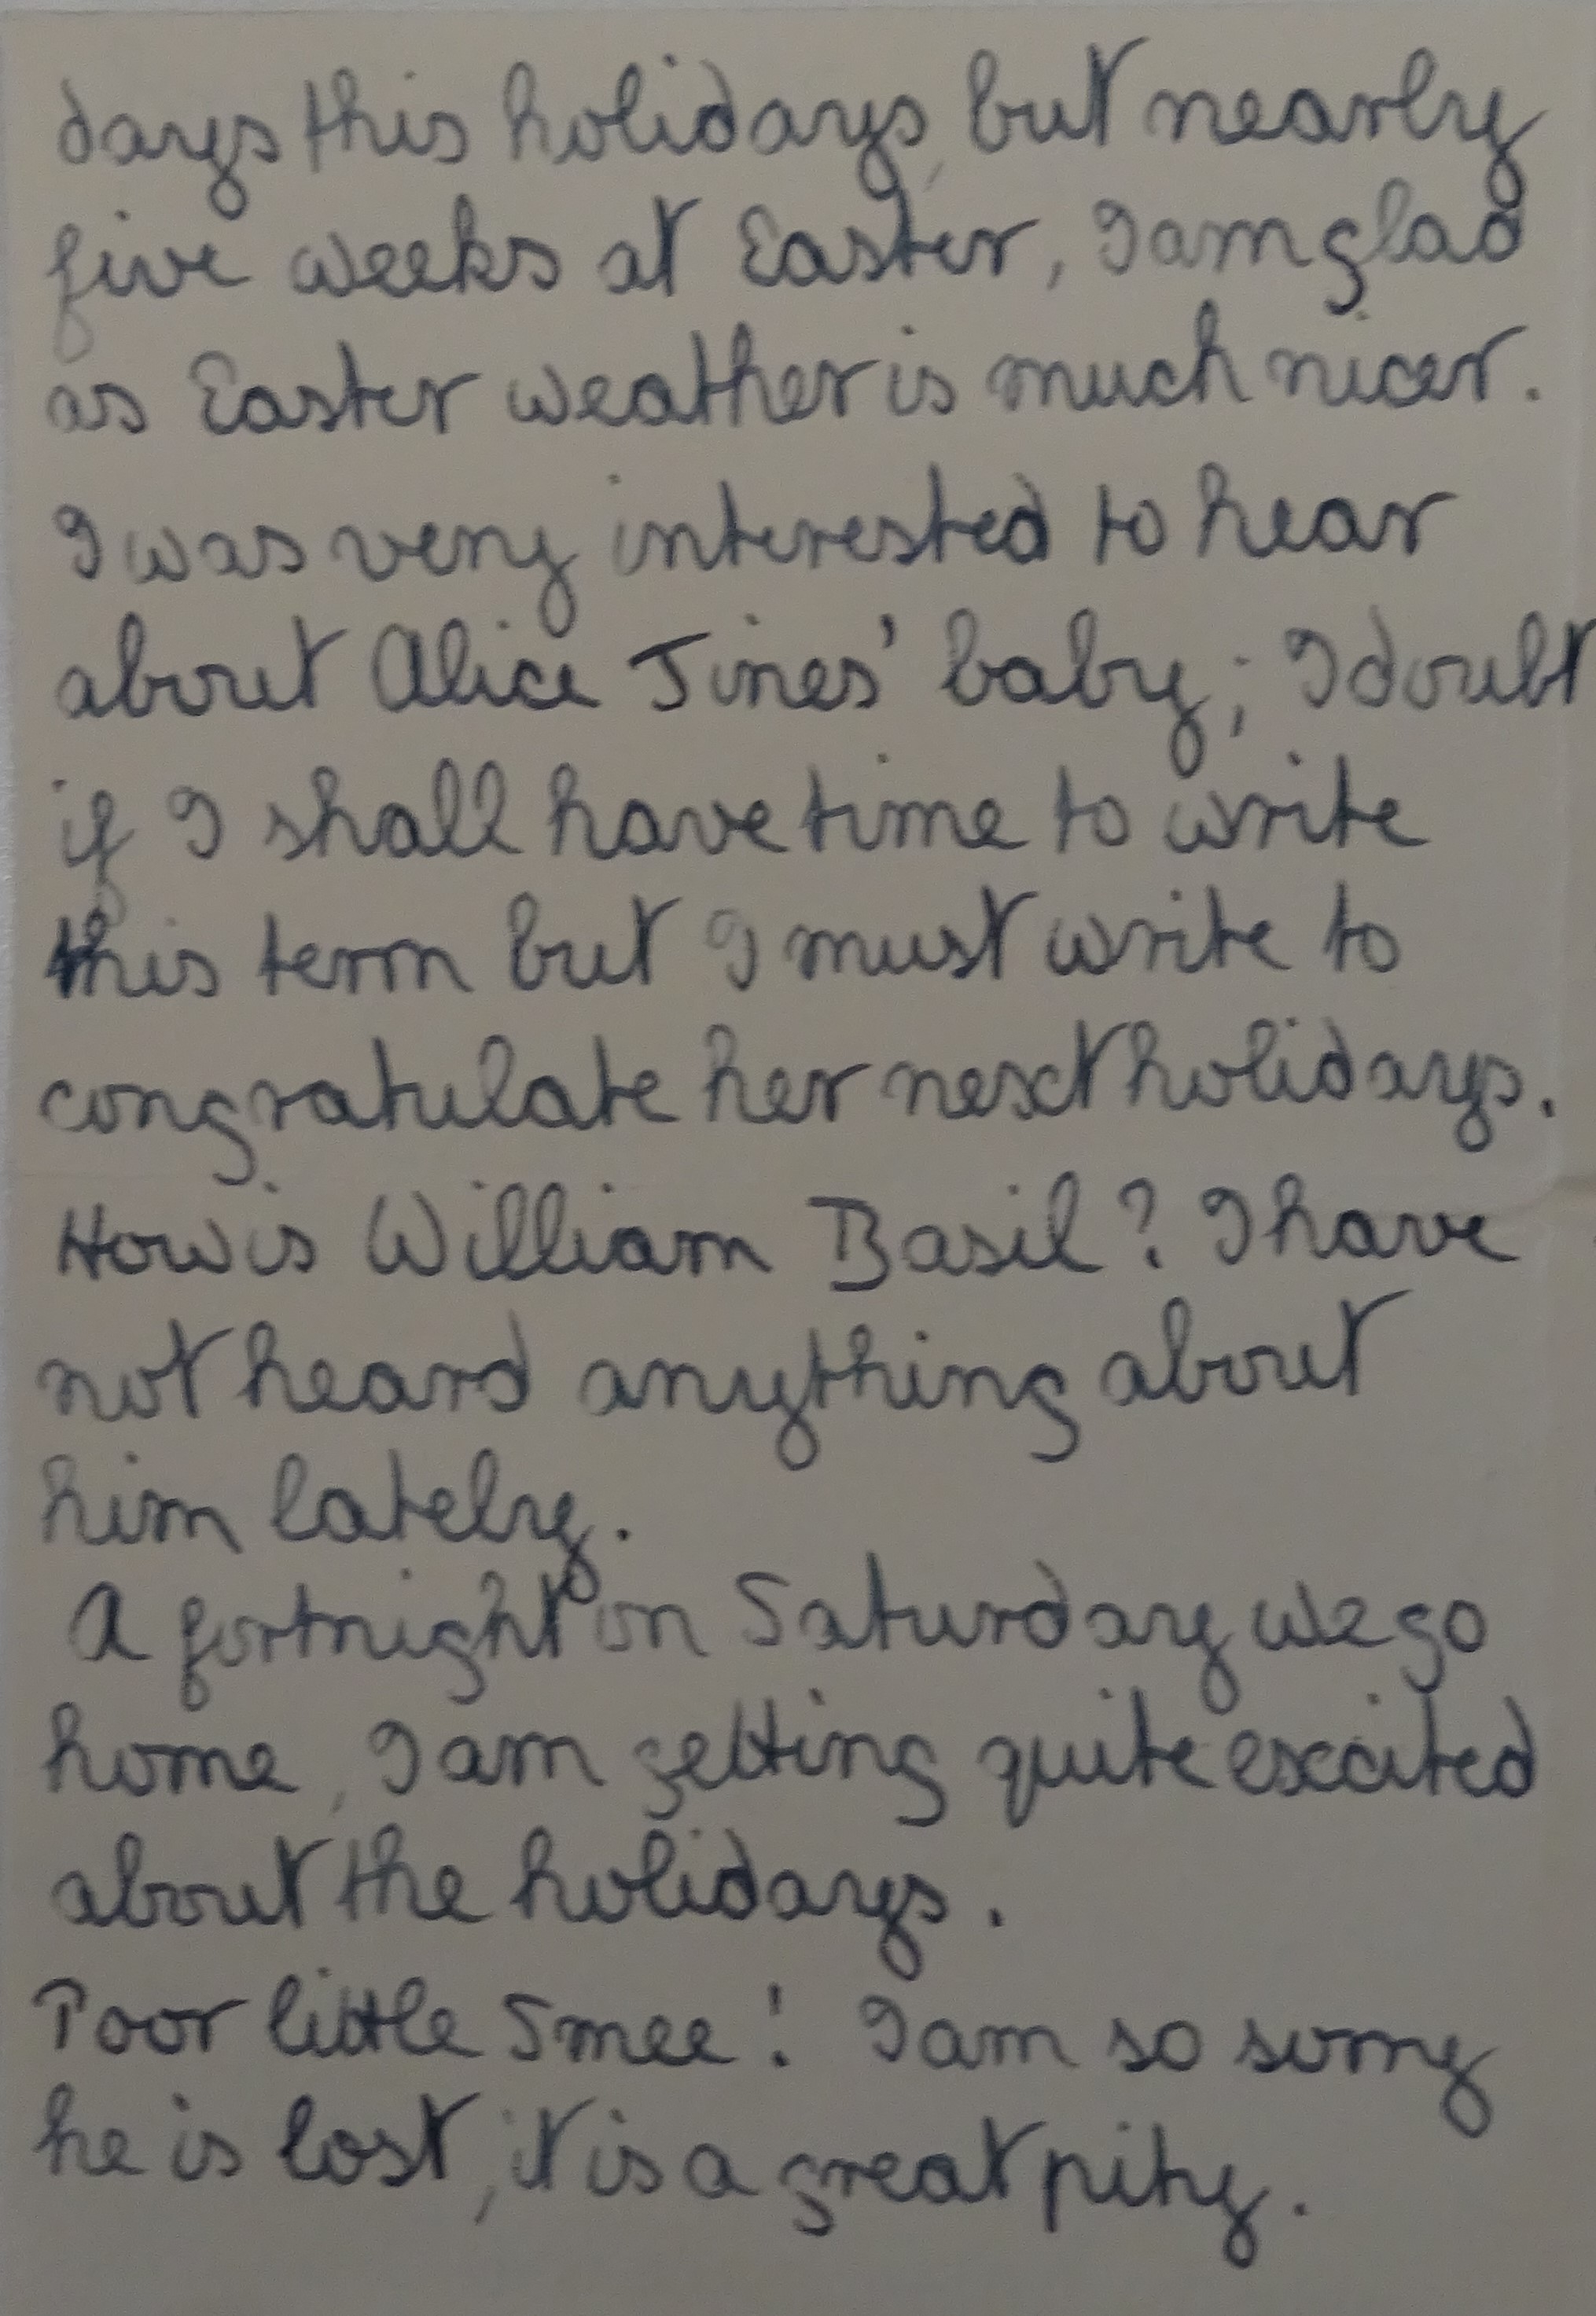 days this holidays, but nearly
five weeks at Easter, I am glad
as Easter weather is much nicer.
I was very interested to hear
about Alice Jines' baby; I doubt
if I shall have time to write
this term but I must write to
congratulate her next holidays.
How is William Basil? I have
not heard anything about
him lately.
A fortnight on Saturday we go
home, I am getting quite excited
about the holidays.
Poor little Smee! I am so sorry
he is lost, it is a great pity.